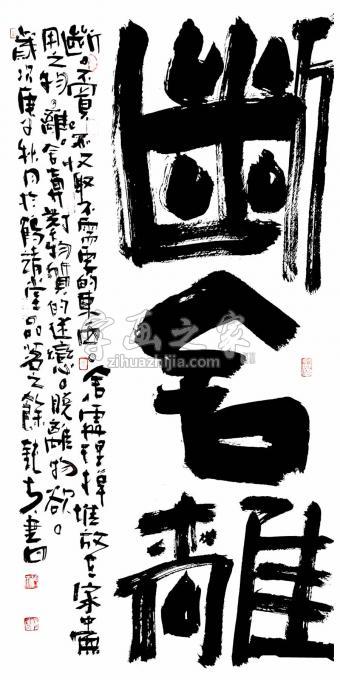 斷舍離
斷。不買。不收取不需要的東西。舍。處理掉堆放在家中
用之物。離。舍弃對物質的迷戀。脫離物欲。
歲次庚子秋月於靖堂品茗之餘
字画之家
zihuazhijia.com